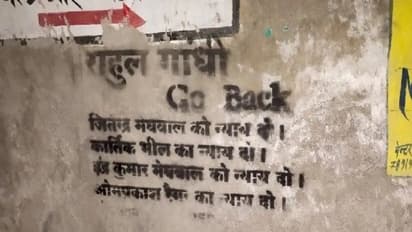 राहुल गांधी
Go Back
जितेन्द्र मेघवाल को न्याय दो।
कार्तिक भील का न्याय दो।
कुमार मेघवाल को न्याय दो।
ओमप्रकाश रैगर का न्याय दो।